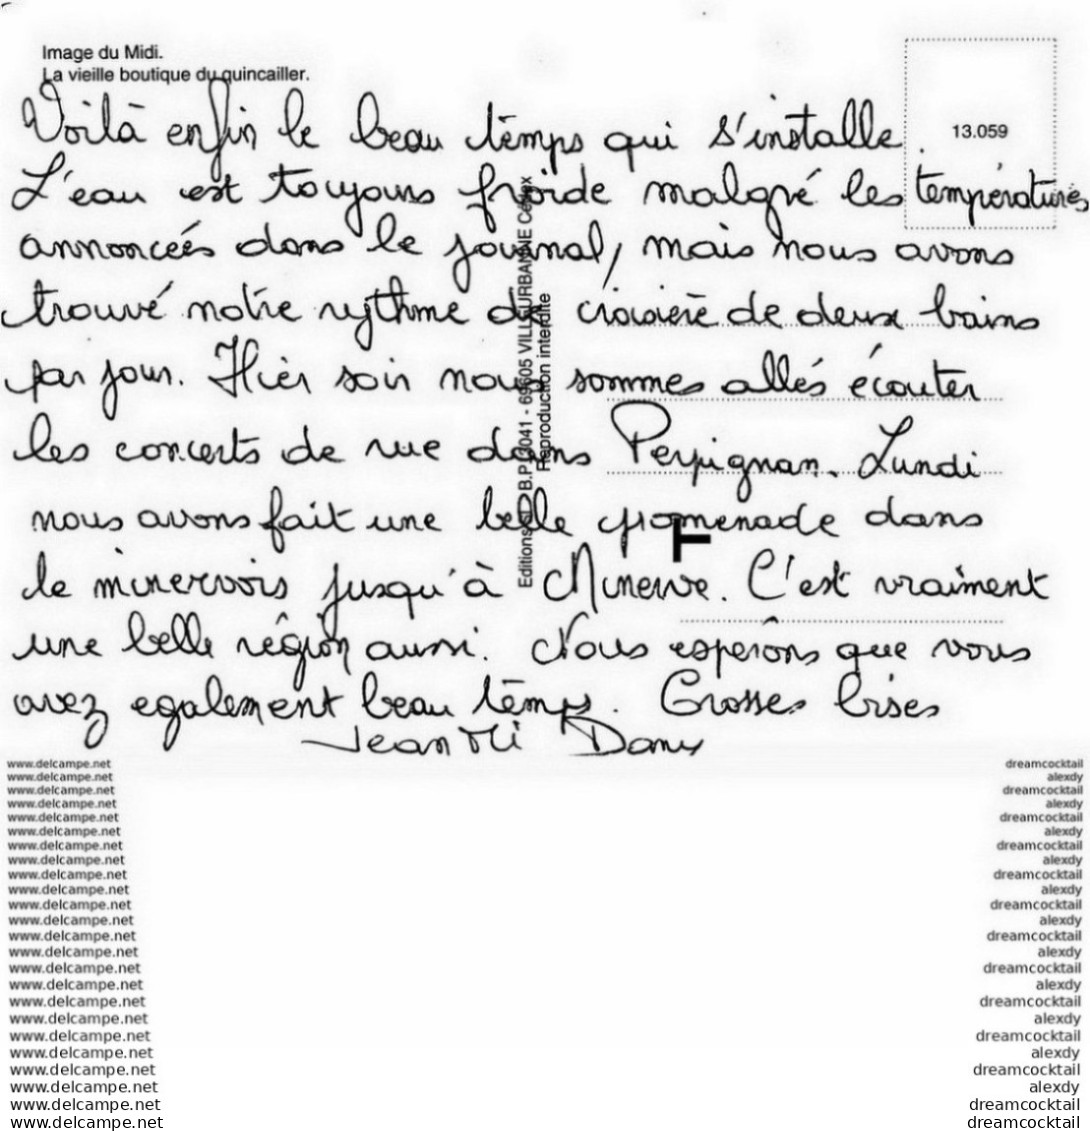 Image du Midi.
La vieille boutique du quincailler.
13.059
Voilà enfin le beau temps qui s'installe.
L'eau est toujours froide malgré les températures
annoncées dans le journal, mais nous avons
trouvé notre rythme de croisière de deux bains
par jour. Hier soir nous sommes allés écouter
les concerts de rue dans Perpignan. Lundi
nous avons fait une belle promenade dans
le minervois jusqu'à Minerve. C'est vraiment
une belle région aussi. Nous esperons que vous
avez egalement beau temps. Grosses bises
Jean Mi Dany
Editions B.P. 3041 - 69605 VILLEURBANNE Cédex
Reproduction interdite
www.delcampe.net dreamcocktail
www.delcampe.net alexdy
www.delcampe.net dreamcocktail
www.delcampe.net alexdy
www.delcampe.net dreamcocktail
www.delcampe.net alexdy
www.delcampe.net dreamcocktail
www.delcampe.net alexdy
www.delcampe.net dreamcocktail
www.delcampe.net alexdy
www.delcampe.net dreamcocktail
www.delcampe.net alexdy
www.delcampe.net dreamcocktail
www.delcampe.net alexdy
www.delcampe.net dreamcocktail
www.delcampe.net alexdy
www.delcampe.net dreamcocktail
www.delcampe.net alexdy
www.delcampe.net dreamcocktail
www.delcampe.net alexdy
www.delcampe.net dreamcocktail
www.delcampe.net alexdy
www.delcampe.net dreamcocktail
www.delcampe.net dreamcocktail